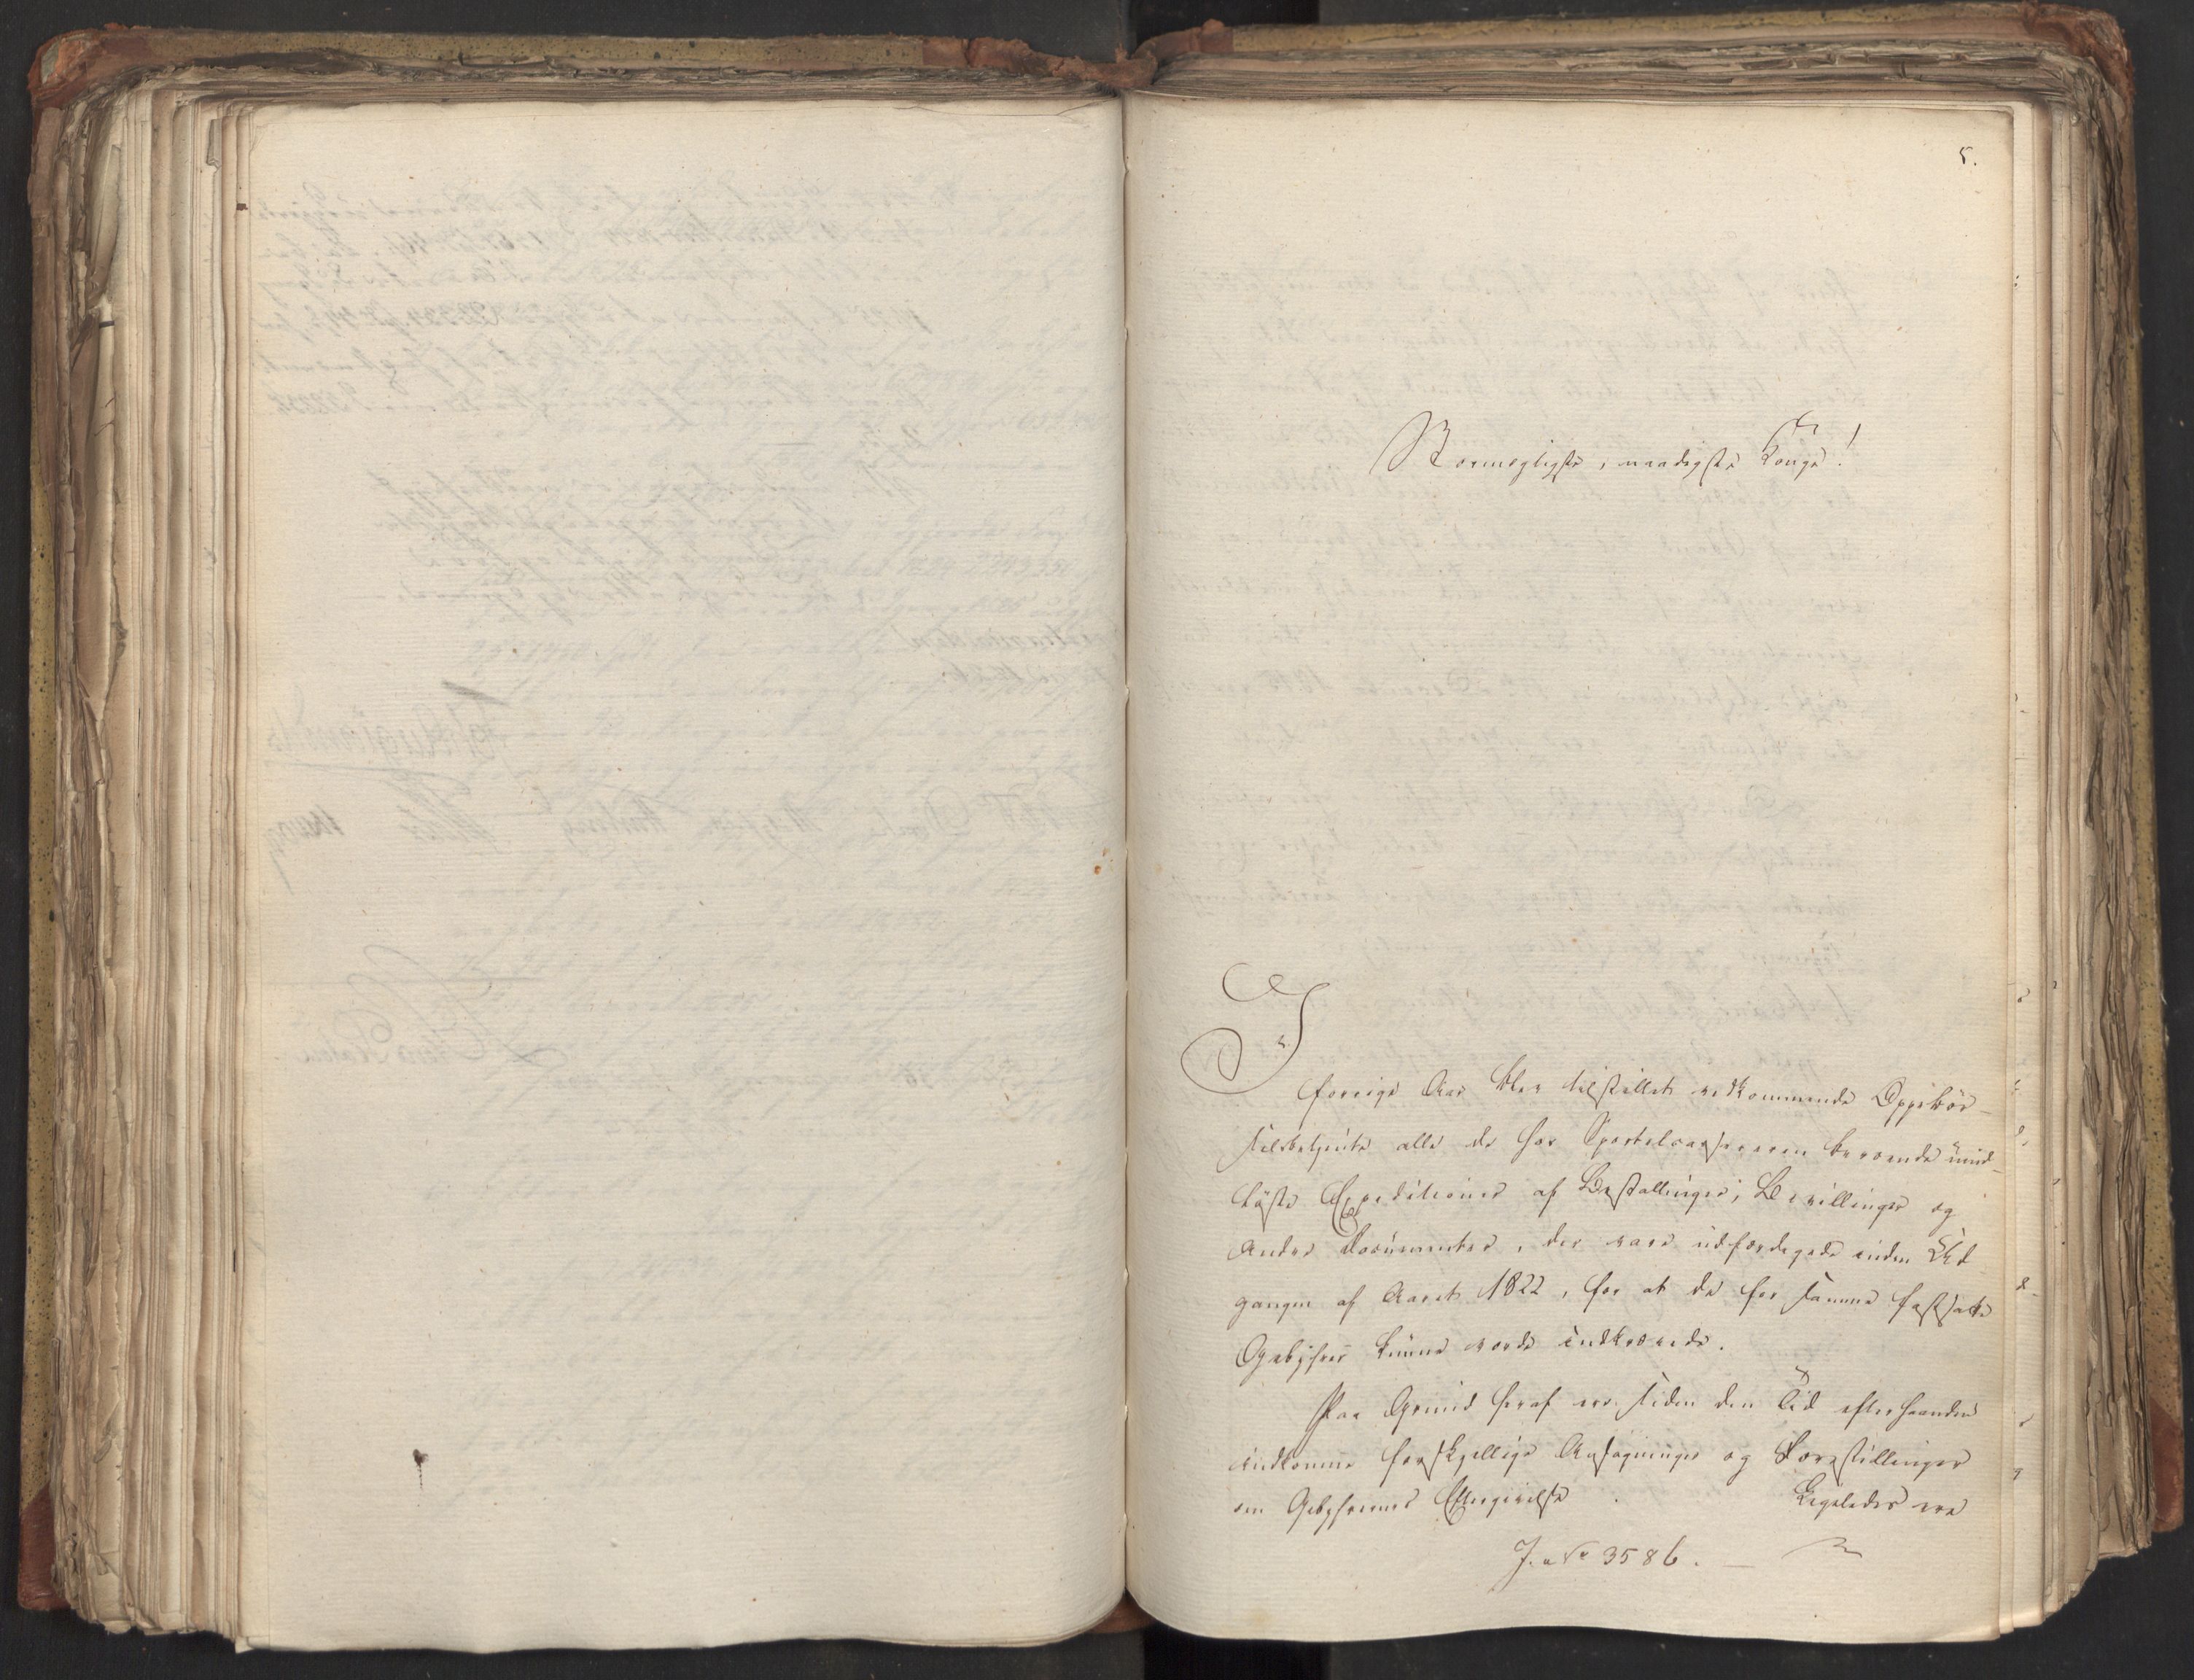 5.
Stormægtigste, naadigste Konge!
I
forrige Aar blev tilstillet vedkommende Oppebør-
selsbetjente alle de hos Sportelcassereren beroende uind-
løste Expeditioner af Bestallinger, Bevillinger og
andre Documenter, der vare udfærdigede inden Ud-
gangen af Aaret 1822, for at de for samme fastsatte
Gebyhrer kunne vorde indkrævede.
Paa Grund heraf ere siden den Tid efterhaanden
indkomne forskjellige Ansøgninger og Forestillinger
om Gebyhrernes Eftergivelse. Ligeledes ere
J. No 3586.